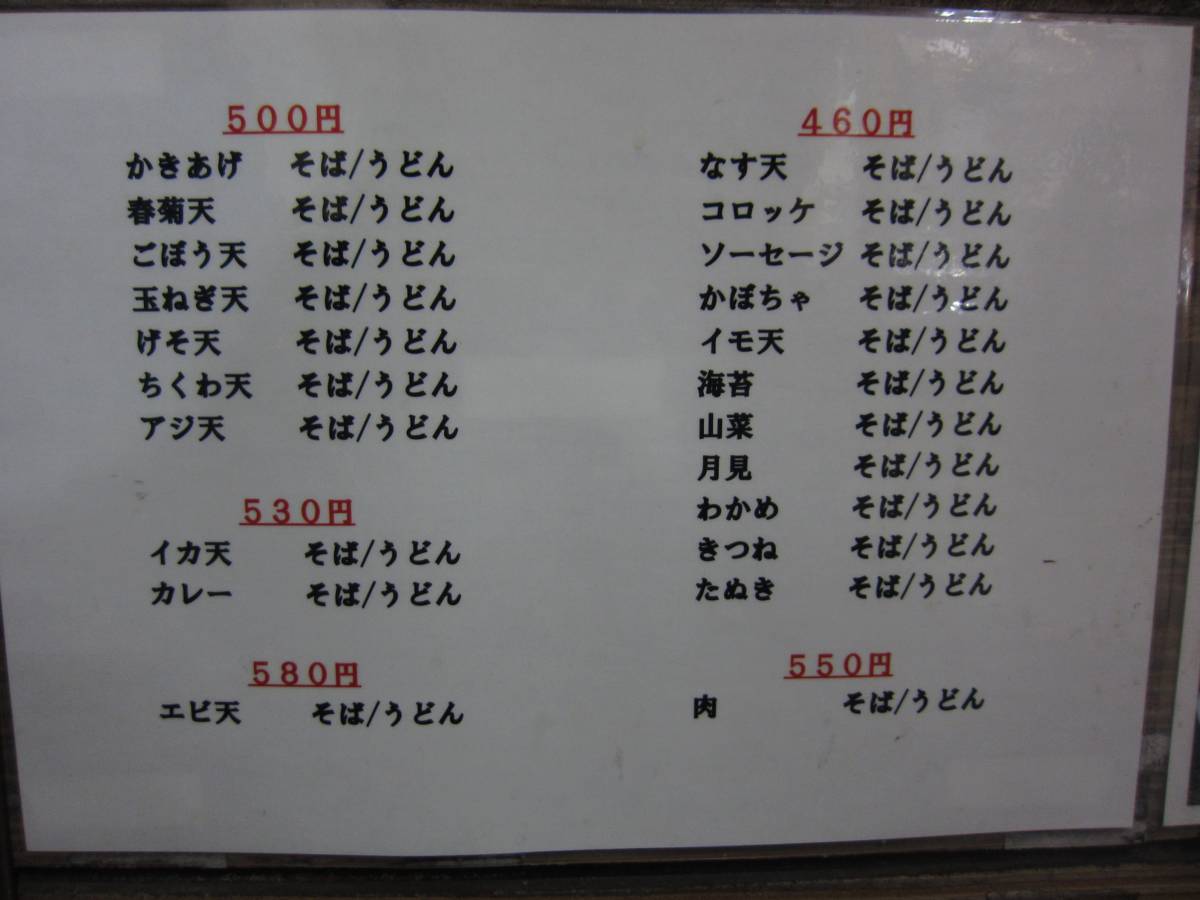 500円
かきあげ そば/うどん
春菊天 そば/うどん
ごぼう天 そば/うどん
玉ねぎ天 そば/うどん
げそ天 そば/うどん
ちくわ天 そば/うどん
アジ天 そば/うどん
530円
イカ天 そば/うどん
カレー そば/うどん
580円
エビ天 そば/うどん
460円
なす天 そば/うどん
コロッケ そば/うどん
ソーセージ そば/うどん
かぼちゃ そば/うどん
イモ天 そば/うどん
海苔 そば/うどん
山菜 そば/うどん
月見 そば/うどん
わかめ そば/うどん
きつね そば/うどん
たぬき そば/うどん
550円
肉 そば/うどん